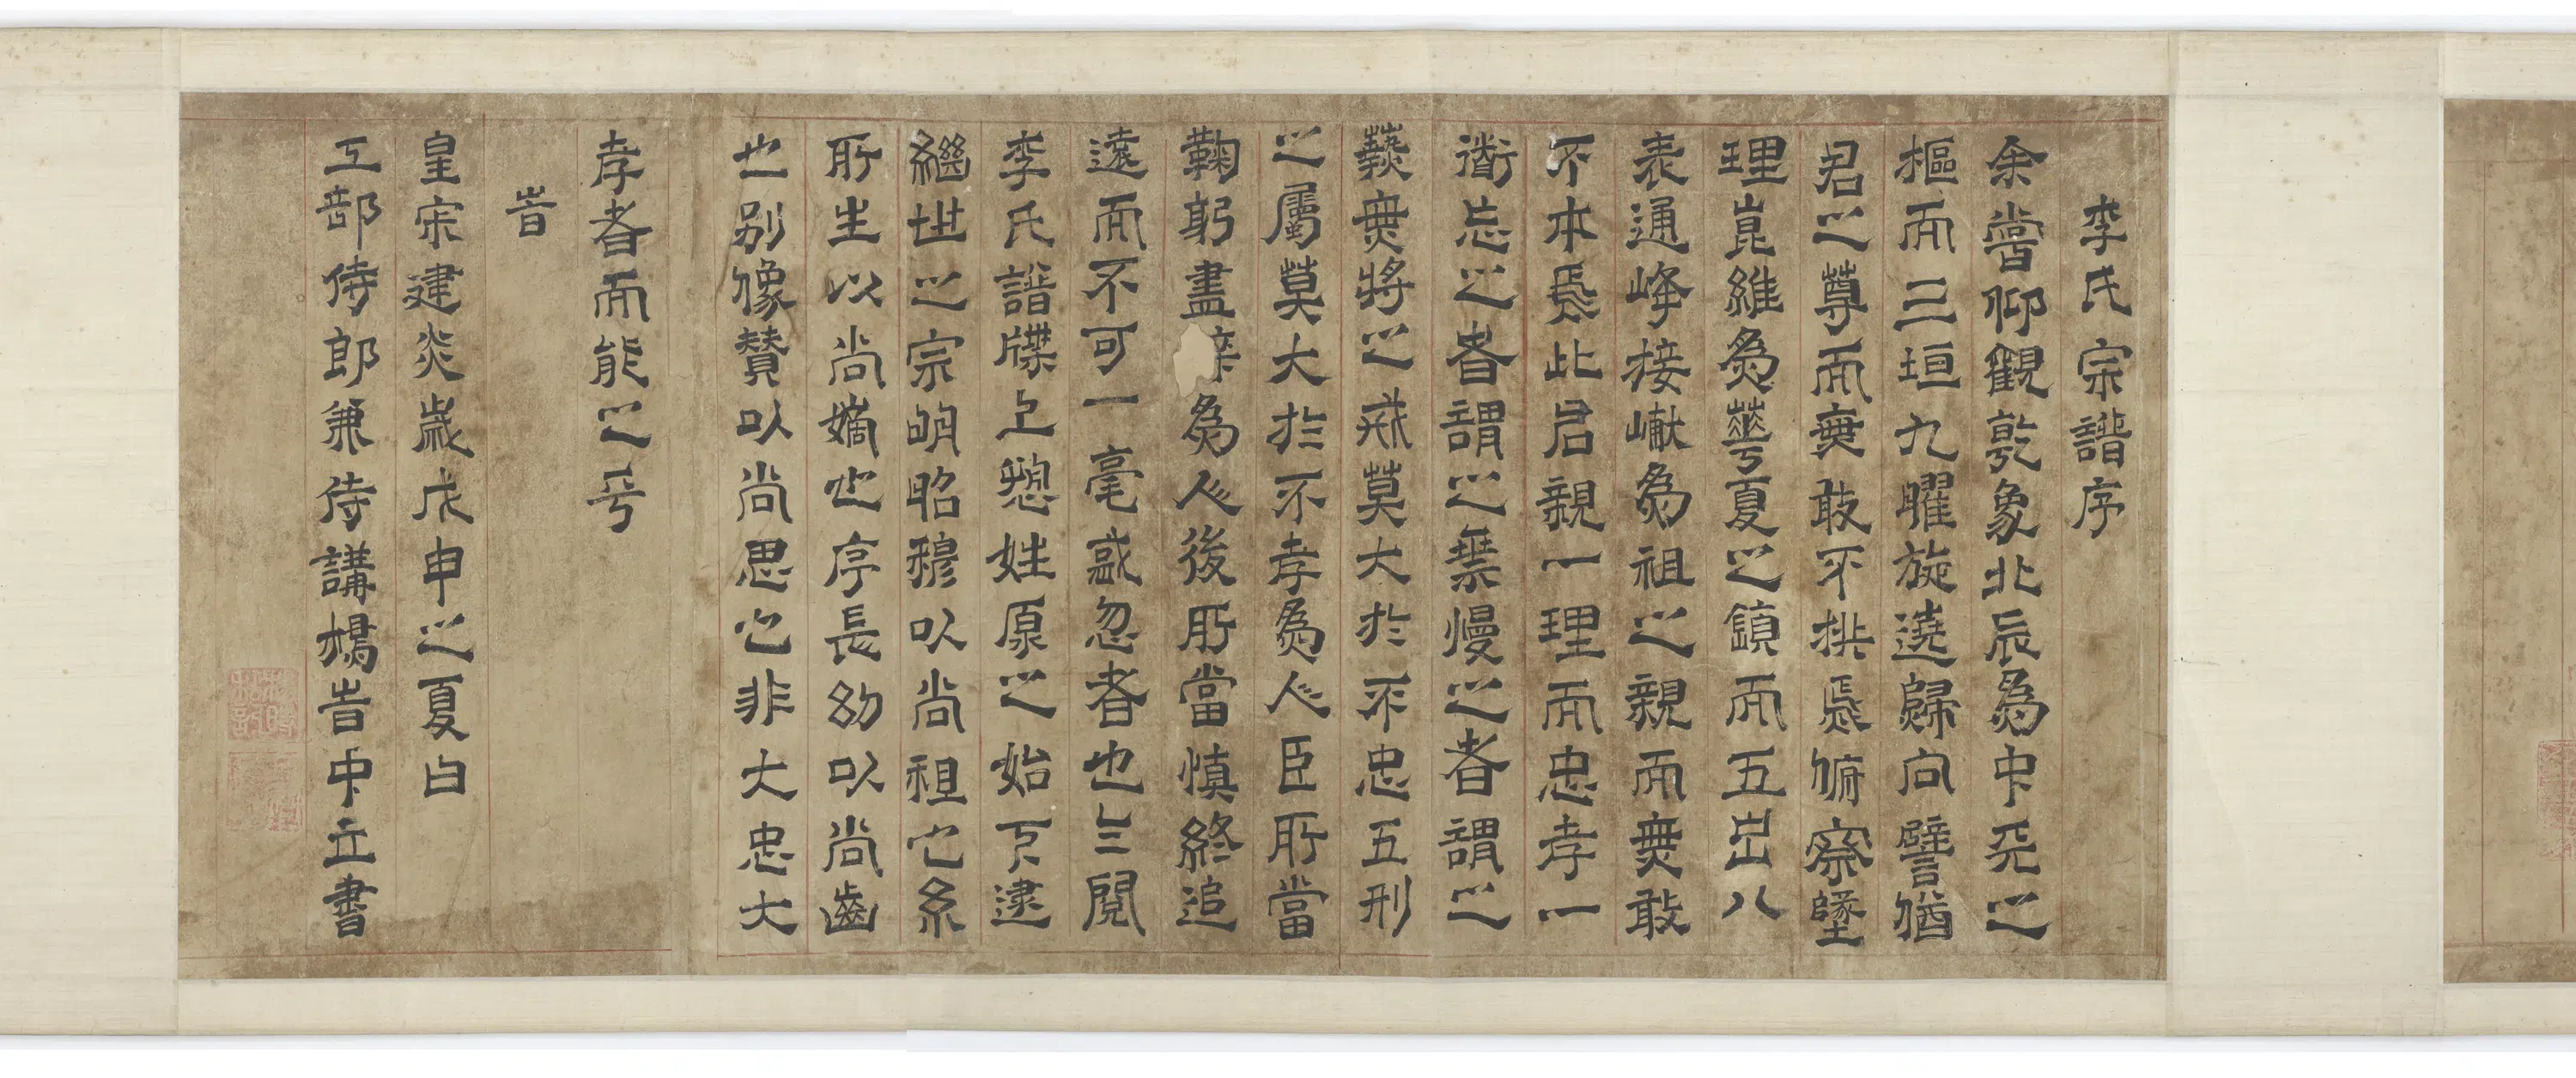 李氏宗譜序
余嘗仰觀乾象北辰為中天之
樞而三垣九曜旋遶歸向譬猶
君之尊而無敢不拱焉俯察墜
理崑維為華夏之鎮而五岳八
表通峰接巘為祖之親而無敢
不本焉此君親一理而忠孝一
衜忘之者謂之禁慢之者謂之
蓺無將之戒莫大於不忠五刑
之屬莫大於不孝為人臣所當
鞠躬盡瘁為人後所當慎終追
遠而不可一毫或忽者也玄閱
李氏譜牒上愬姓原之始下逮
繼世之宗明昭穆以尚祖也系
所生以尚嫡也序長幼以尚齒
也別像贊以尚思也非大忠大
孝者而能之乎
旹
皇宋建炎歲戊申之夏日
工部侍郎兼侍講楊旹中立書